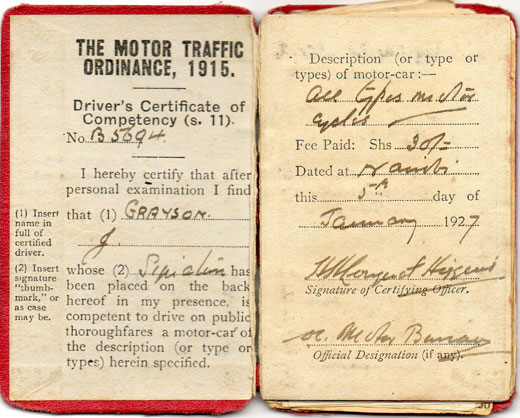 THE MOTOR TRAFFIC
ORDINANCE, 1915.
Driver's Certificate of
Competency (s. 11).
No. B5694
I hereby certify that after
personal examination I find
(1) Insert
name in
full of
certified
driver.
that (1) GRAYSON.
J.
(2) Insert
signature
"thumb-
mark," or
as case
may be.
whose (2) has
been placed on the back
hereof in my presence, is
competent to drive on public
thoroughfares a motor-car of
the description (or type or
types) herein specified.
Description (or type or
types) of motor-car:—
All types motor
cycles
Fee Paid: Shs 20/=
Dated at Nairobi
this 5th day of
January 1927
Higgens
Signature of Certifying Officer.
Motor Bureau
Official Designation (if any).